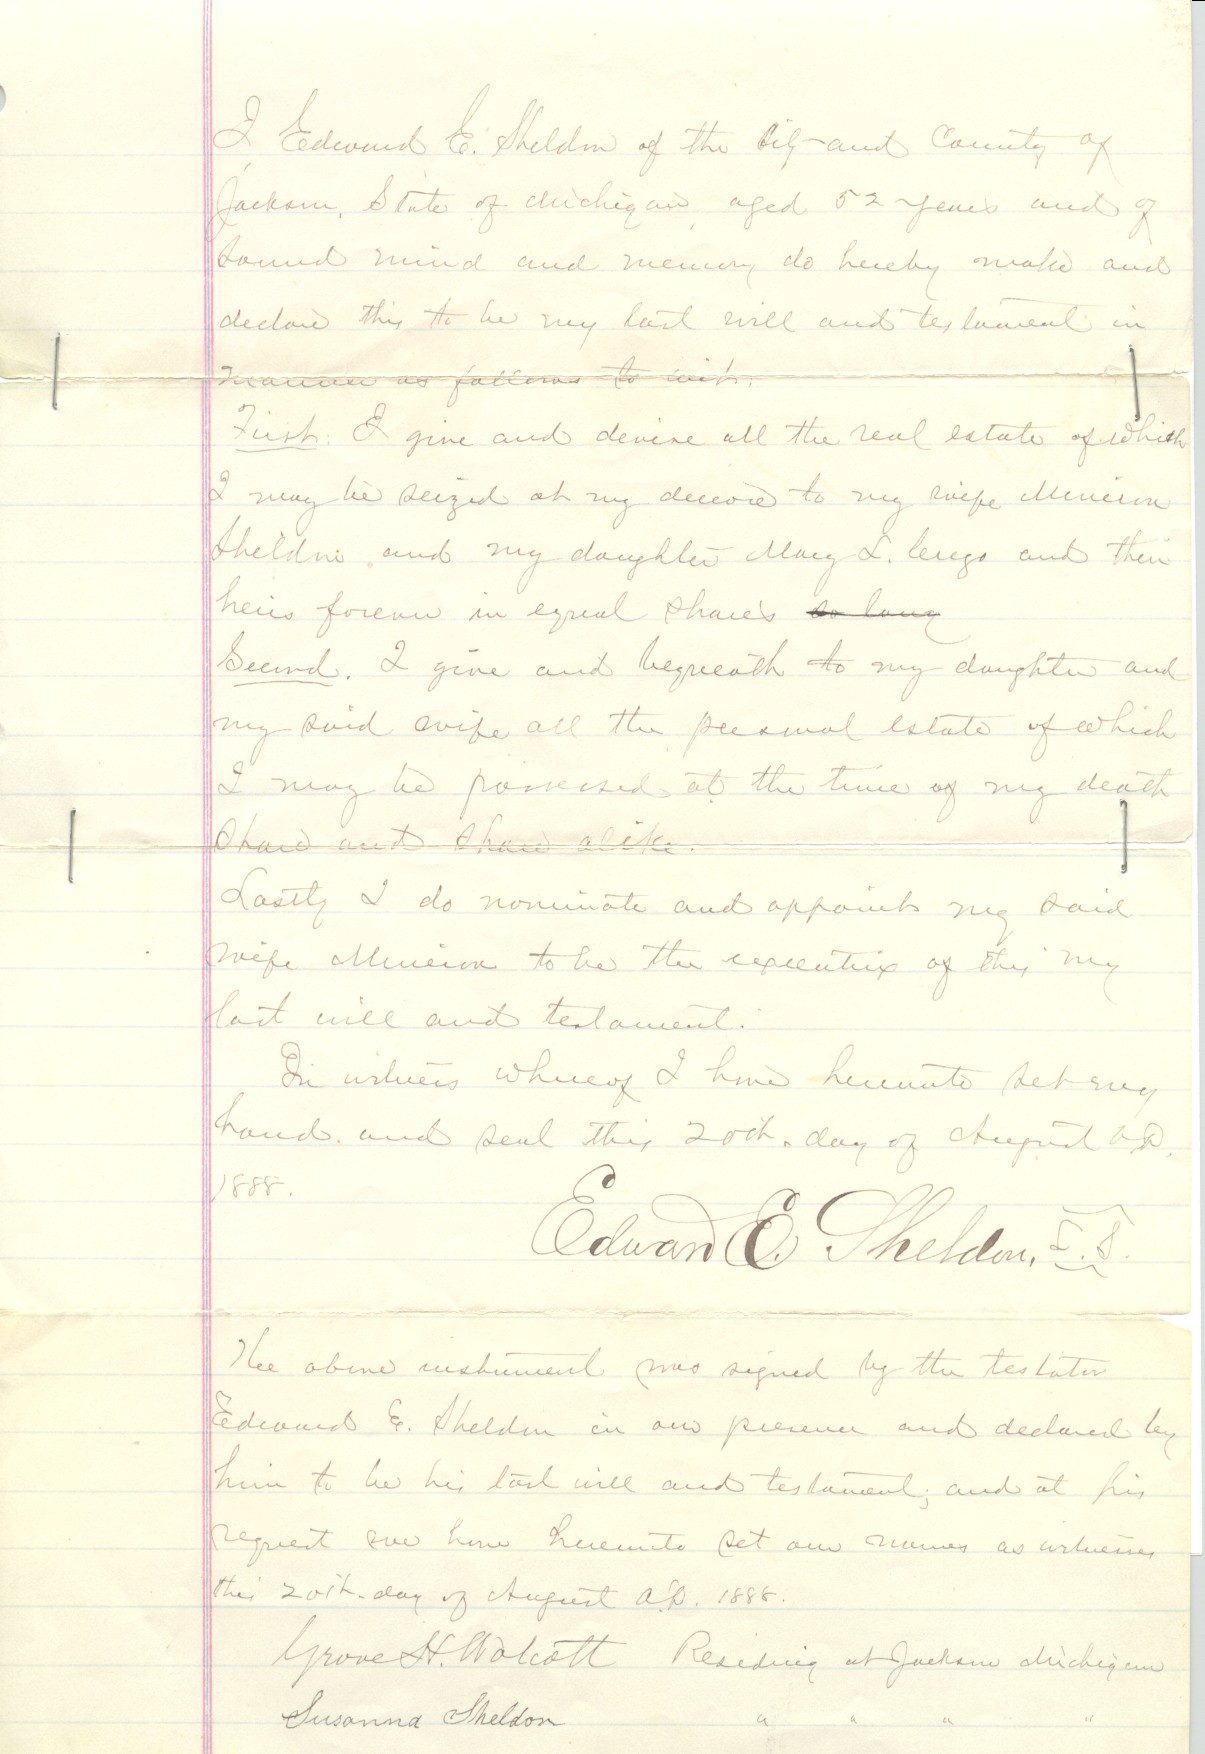 I Edward E. Sheldon of the City and County of
Jackson, State of Michigan, aged 52 years and of
sound mind and memory do hereby make and
declare this to be my last will and testament in
manner as follows to wit.
First. I give and devise all the real estate of which
I may be seized at my decease to my wife
Sheldon and my daughter Mary L. and their
heirs forever in equal shares so long
Second. I give and bequeath to my daughter and
my said wife all the personal estate of which
I may be possessed at the time of my death
share and share alike.
Lastly I do nominate and appoint my said
wife to be the executrix of this my
last will and testament.
In witness whereof I have hereunto set my
hand and seal this 20th. day of August A.D.
1888.
Edward E. Sheldon, L.S.
The above instrument was signed by the testator
Edward E. Sheldon in our presence and declared by
him to be his last will and testament; and at his
request we have hereunto set our names as witnesses
this 20th. day of August A.D. 1888.
Grove H. Wolcott Residing at Jackson Michigan
Susanna Sheldon " " " "